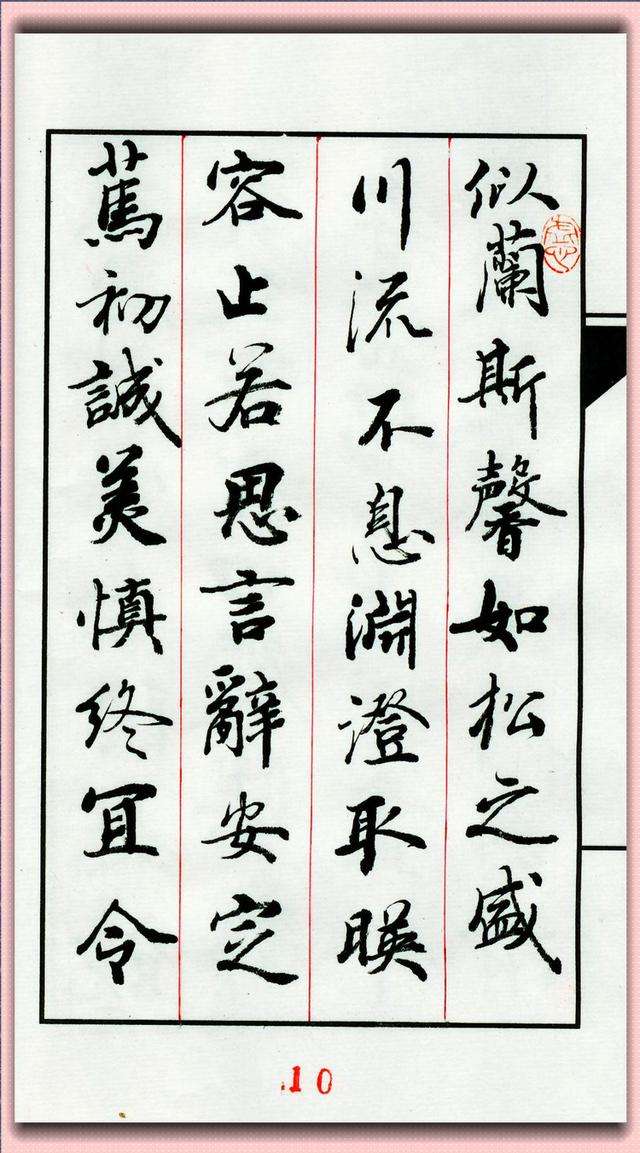 似蘭斯馨如松之盛
川流不息淵澄取暎
容止若思言辭安定
篤初誠美慎終宜令
10